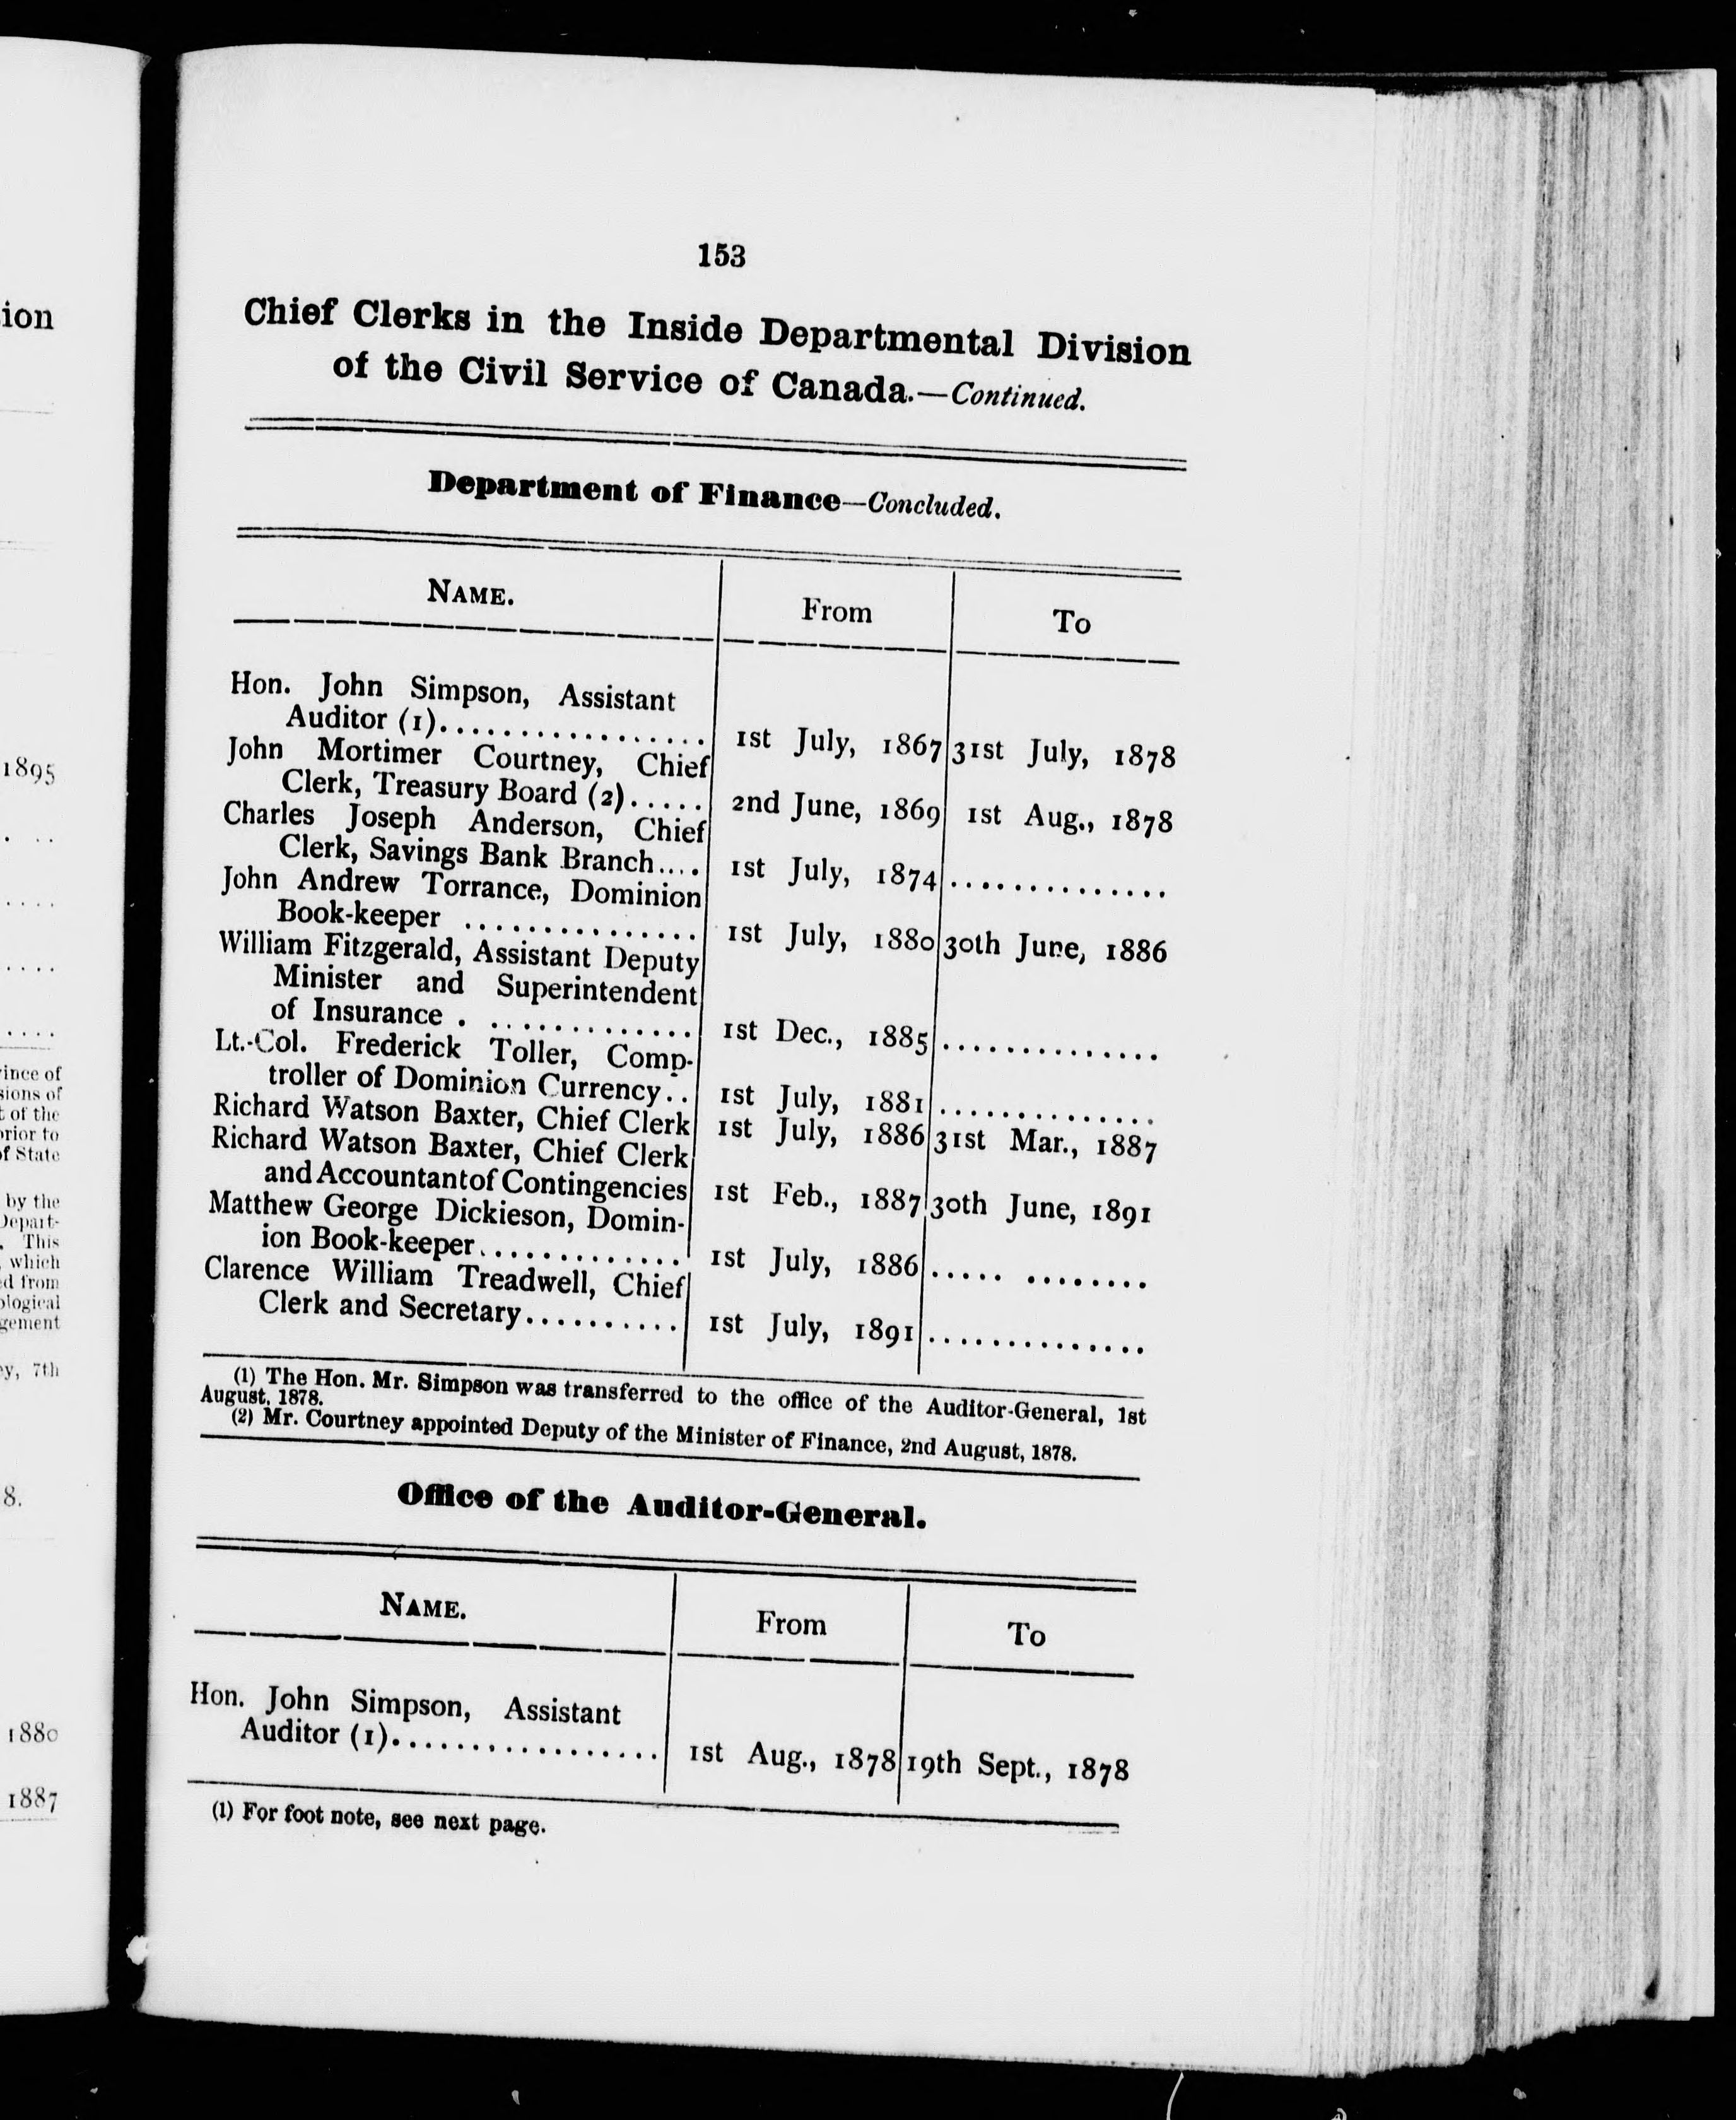 153
Chief Clerks in the Inside Departmental Division
of the Civil Service of Canada.—Continued.
Department of Finance—Concluded.
NAME. From To
Hon. John Simpson, Assistant
Auditor (1).................. 1st July, 1867 31st July, 1878
John Mortimer Courtney, Chief
Clerk, Treasury Board (2)..... 2nd June, 1869 1st Aug., 1878
Charles Joseph Anderson, Chief
Clerk, Savings Bank Branch.... 1st July, 1874 ..............
John Andrew Torrance, Dominion
Book-keeper ............... 1st July, 1880 30th June, 1886
William Fitzgerald, Assistant Deputy
Minister and Superintendent
of Insurance . ............. 1st Dec., 1885 ..............
Lt.-Col. Frederick Toller, Comp-
troller of Dominion Currency.. 1st July, 1881 ..............
Richard Watson Baxter, Chief Clerk 1st July, 1886 31st Mar., 1887
Richard Watson Baxter, Chief Clerk
and Accountant of Contingencies 1st Feb., 1887 30th June, 1891
Matthew George Dickieson, Domin-
ion Book-keeper............. 1st July, 1886 ..... ........
Clarence William Treadwell, Chief
Clerk and Secretary.......... 1st July, 1891 ..............
(1) The Hon. Mr. Simpson was transferred to the office of the Auditor-General, 1st
August, 1878.
(2) Mr. Courtney appointed Deputy of the Minister of Finance, 2nd August, 1878.
Office of the Auditor-General.
NAME. From To
Hon. John Simpson, Assistant
Auditor (1)................. 1st Aug., 1878 19th Sept., 1878
(1) For foot note, see next page.
ion
1895
ince of
sions of
t of the
prior to
of State
by the
Depart-
. This
which
d from
ological
gement
y, 7th
8.
1880
1887